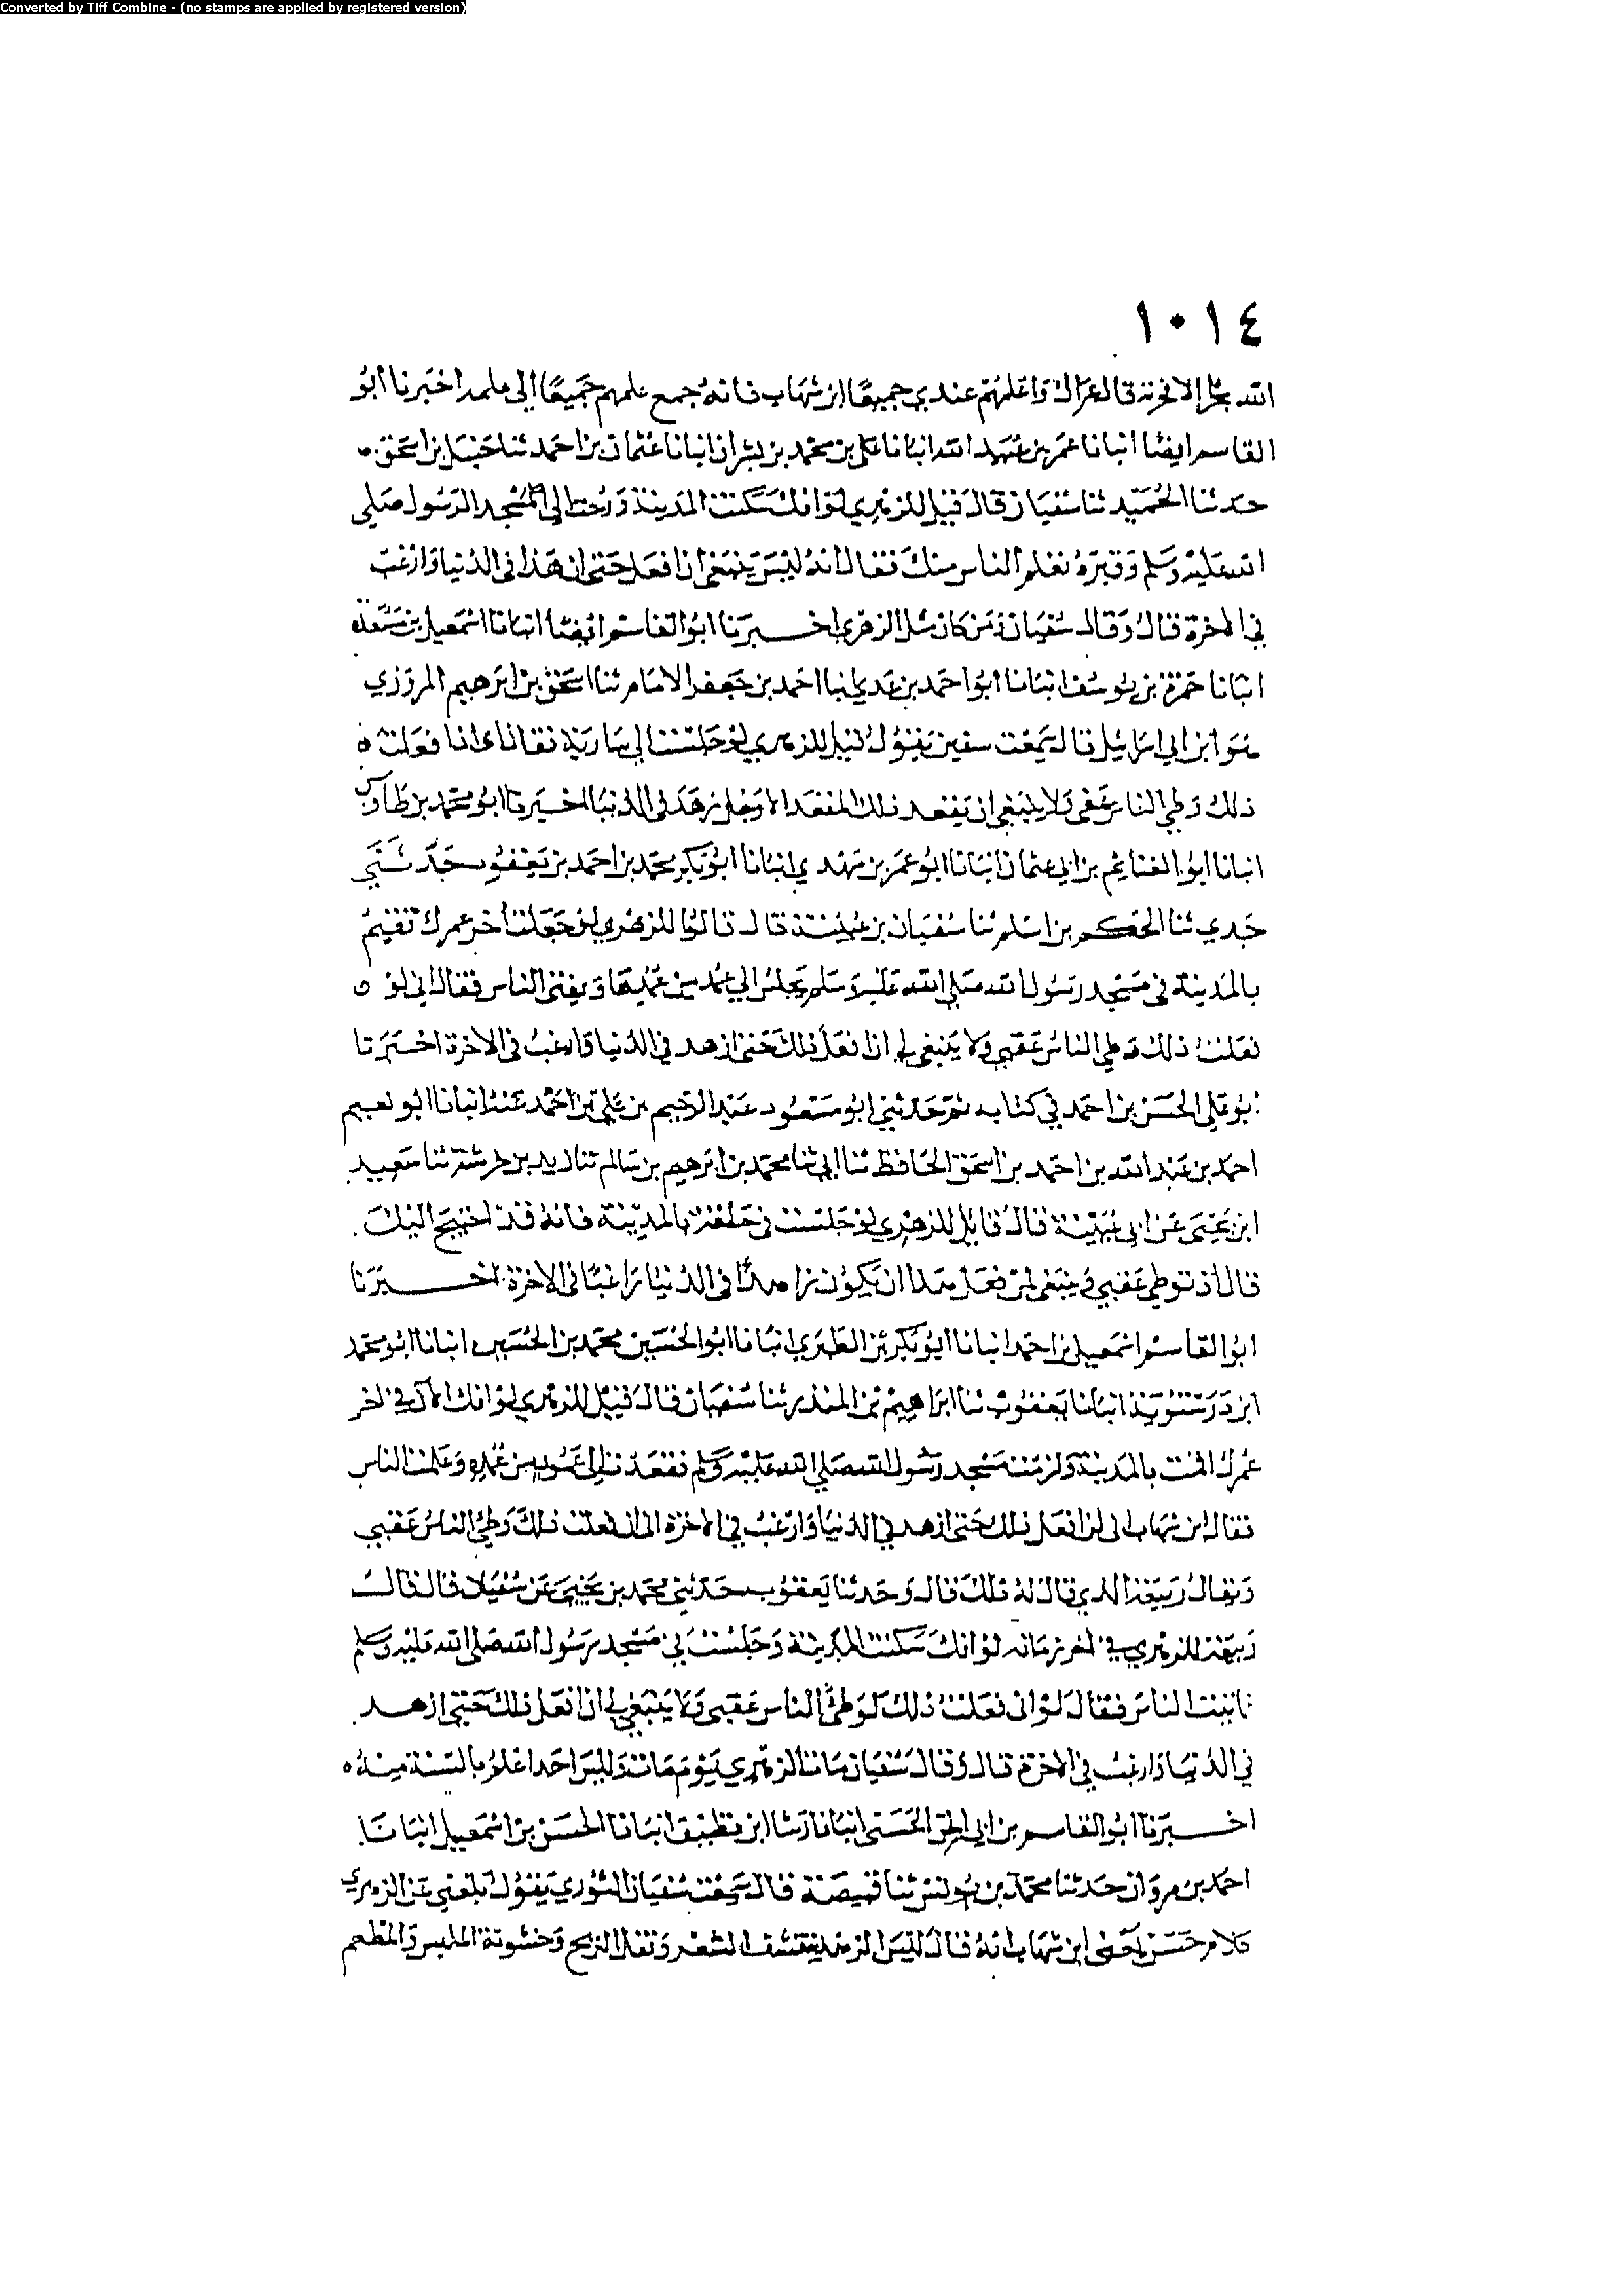 Converted by Tiff Combine - (no stamps are applied by registered version)
١٠١٤
الله بحرا الا فجرته قال عراك واعلمهم عندي جميعا ابن شهاب فانه جمع علمهم جميعا الى علمه اخبرنا ابو
القاسم ايضا انبانا عمر بن عبيد الله انبانا علي بن محمد بن بشران انبانا عثمان بن احمد ثنا حنبل بن اسحق
حدثنا الحميدي ثنا سفيان قال قيل للزهري لو انك سكنت المدينة ورحت الى مسجد الرسول صلى
الله عليه وسلم وقبره تعلم الناس منك فقال انه ليس ينبغي ان افعل حتى ازهد في الدنيا وارغب
في الاخرة قال وقال سفيان ومن كان مثل الزهري اخبرنا ابو القاسم ايضا انبانا اسمعيل بن مسعدة
انبانا حمزة بن يوسف انبانا ابو احمد بن عدي انبا احمد بن جعفر الامام ثنا اسحق بن ابرهيم المروزي
هو ابن ابي اسرائيل قال سمعت سفين يقول قيل للزهري لو جلست الى سارية فقال اني اذا فعلت
ذلك وطي الناس عقبي ولا ينبغي ان يقعد ذلك المقعد الا رجل زهد في الدنيا اخبرنا ابو محمد بن طاوس
انبانا ابو الغنايم بن ابي عثمان انبانا ابو عمر بن مهدي انبانا ابو بكر محمد بن احمد بن يعقوب حدثني
جدي ثنا الحكم بن اسلم ثنا سفيان بن عيينة قال قالوا للزهري لو جعلت اخر عمرك تقيم
بالمدينة في مسجد رسول الله صلى الله عليه وسلم تجلس الى عمد من عمدها وتفتي الناس فقال اني لو
فعلت ذلك وطي الناس عقبي ولا ينبغي لي ان افعل ذلك حتى ازهد في الدنيا وارغب في الاخرة اخبرنا
ابو علي الحسن بن احمد في كتابه ثم حدثني ابو مسعود عبد الرحيم بن علي بن احمد عنه انبانا ابو نعيم
احمد بن عبد الله بن احمد بن اسحق الحافظ ثنا ابي ثنا محمد بن ابرهيم بن سالم ثنا بن خرشة ثنا سعيد
ابن يحيى عن ابن عيينة قال قايل للزهري لو جلست في حلقة بالمدينة فانه قد احتيج اليك
قال اذ توطي عقبي وينبغي لمن فعل هذا ان يكون زاهدا في الدنيا راغبا في الاخرة اخبرنا
ابو القاسم اسمعيل بن احمد انبانا ابو بكر بن الطبري انبانا ابو الحسين محمد بن الحسين انبانا ابو محمد
ابن درستويه انبانا يعقوب ثنا ابراهيم بن المنذر ثنا سفيان قال قيل للزهري لو انك الان في اخر
عمرك اقمت بالمدينة ولزمت مسجد رسول الله صلى الله عليه وسلم فقعدت الى عمود من عمده وعلمت الناس
فقال ابن شهاب اني لن افعل ذلك حتى ازهد في الدنيا وارغب في الاخرة اني ان فعلت ذلك وطي الناس عقبي
ويقال ربيعة الذي قال له ذلك قال وحدثنا يعقوب حدثني محمد بن يحيى عن سفيان قال قال
ربيعة للزهري في اخر زمانه لو انك سكنت المدينة وجلست في مسجد رسول الله صلى الله عليه وسلم
فافتيت الناس فقال لو اني فعلت ذلك لوطئ الناس عقبي ولا ينبغي لي ان افعل ذلك حتى ازهد
في الدنيا وارغب في الاخرة قال وقال سفيان مات الزهري يوم مات وليس احد اعلم بالسنة منه
اخبرنا ابو القاسم بن ابي الجن الحسني انبانا رشا ابن نظيف انبانا الحسن بن اسمعيل انبانا
احمد بن مروان حدثنا محمد بن يونس ثنا قبيصة قال سمعت سفيان الثوري يقول بلغني عن الزهري
كلام حسن يعني ابن شهاب انه قال ليس الزهد بتقشف الشعر وتفل الريح وخشونة الملبس والمطعم